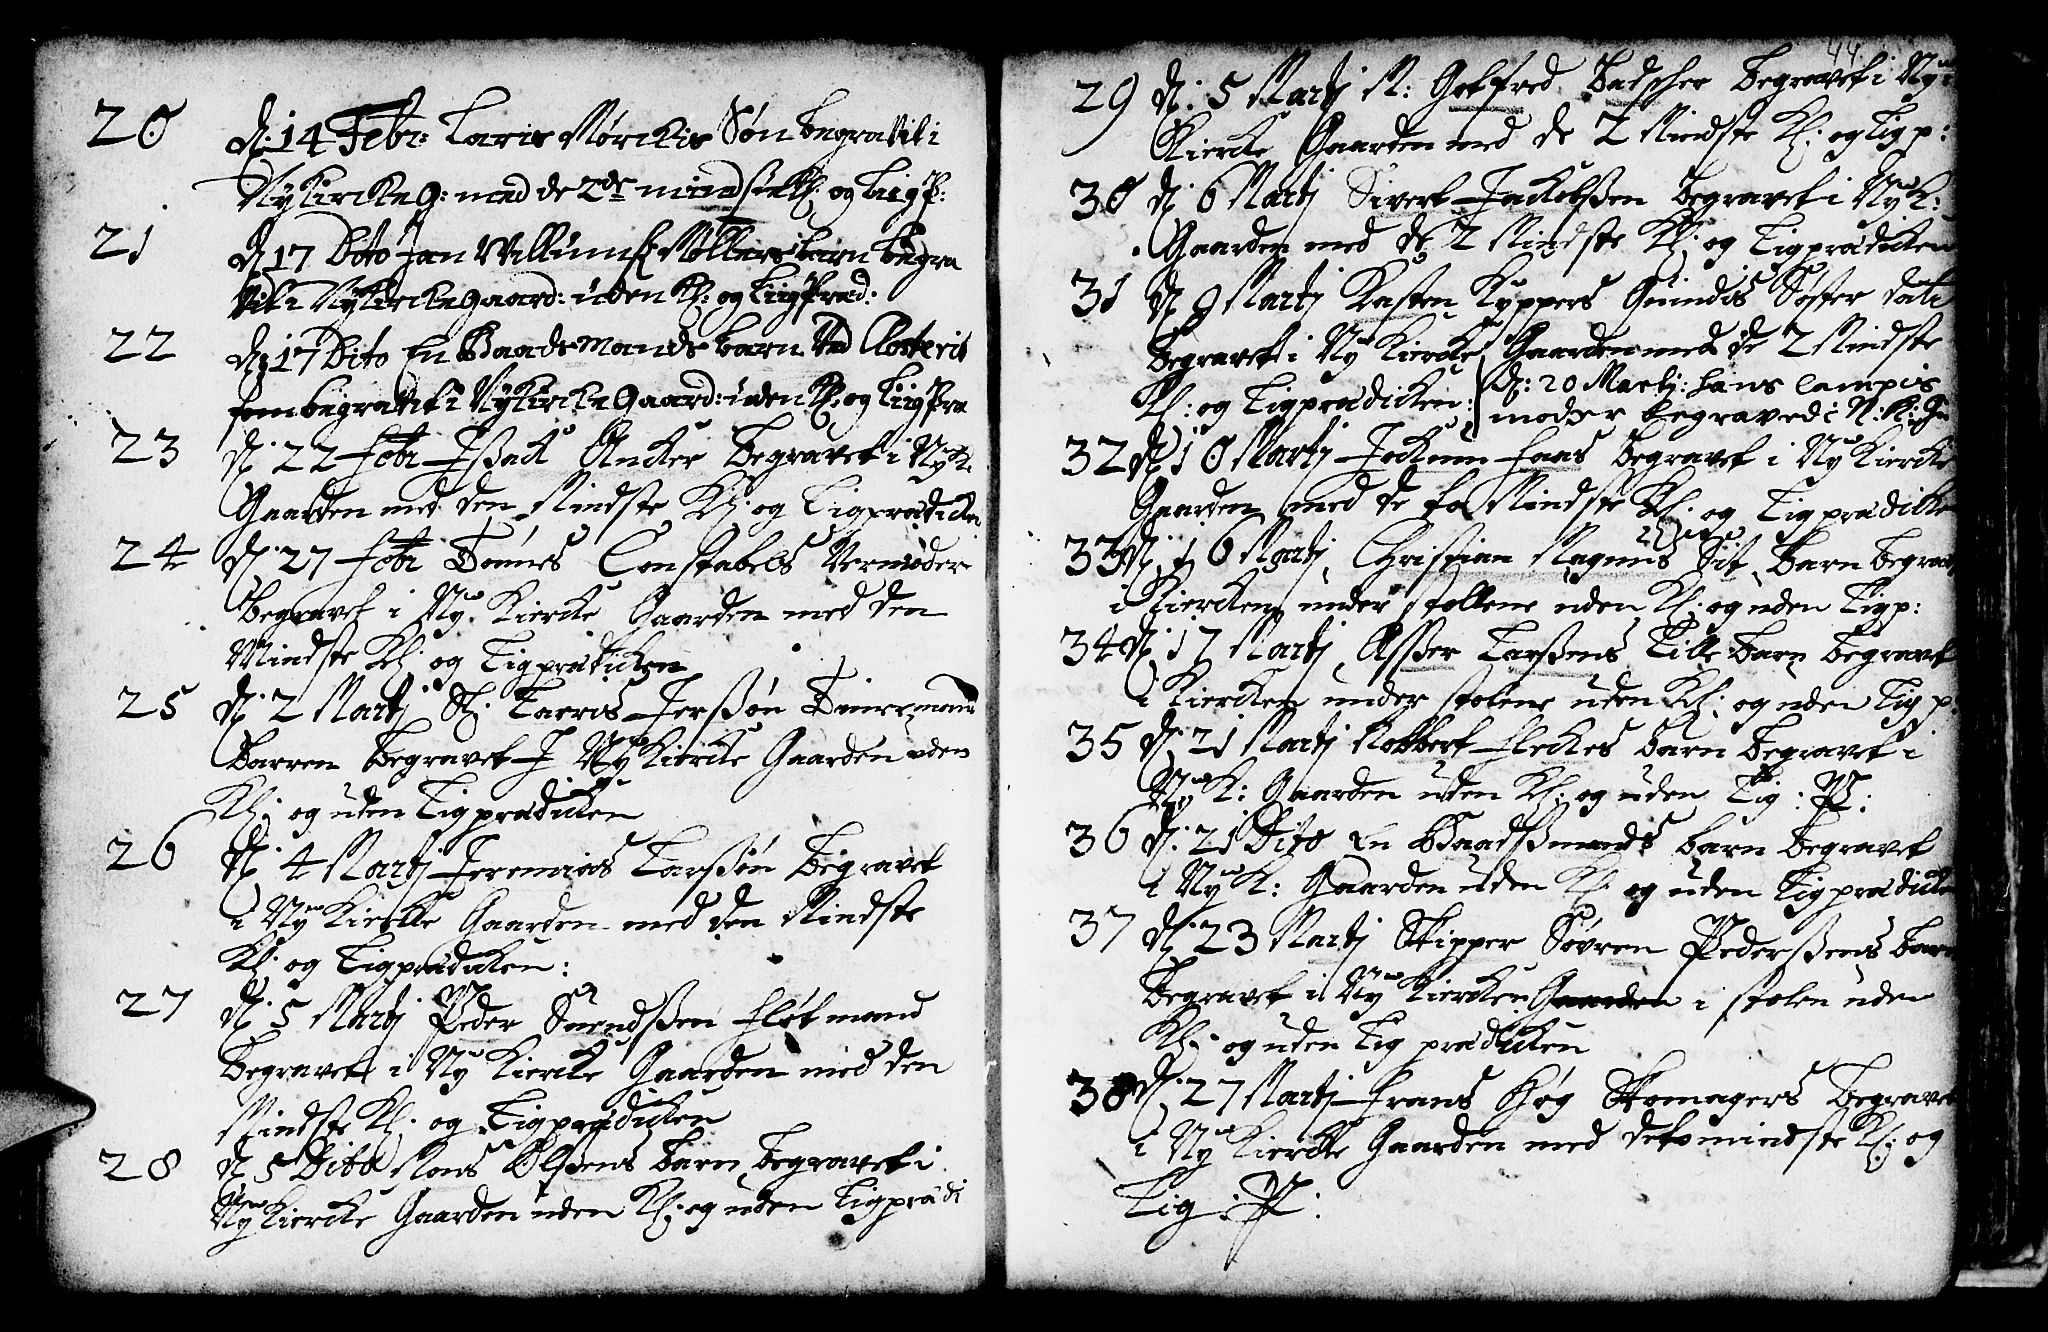 20 d. 14 Febr: Laris Mørckis Søn begravit i
Nykircke G: med de 2de mindste Kl: og Liigp:
21 d 17 Dito Jan Villumss Møllers barn begra
vit i Nykircke Gaard: uden Kl: og Liigpræd:
22 d: 17 Dito En Baadsmands barn ved Closterit
som begravit i Nykircke Gaard: uden Kl: og Liigpræ
23 d. 22 Febr Issack Ancker Begravet i Ny K.
Gaarden med den Mindste Kl: og Ligprædicken
24 d. 27 Febr Tønnes Constabels Vermoder
Begravet i Ny Kiercke Gaarden med den
Mindste Kl: og Ligprædicken
25 d. 2 Martj Sl. Laeris Jerssøn
Barren Begravet I Ny Kiercke Gaarden uden
Kl: og uden Ligprædicken
26 d. 4 Martj Jeremias Larssøn Begravet
i Ny Kiercke Gaarden med den Mindste
Kl: og Ligprædicken:
27 d. 5 Martj Peder Suendssen Fløtmand
Begravet i Ny Kiercke Gaarden med den
Mindste Kl: og Ligprædicken
28 d 5 Dito Mons Olssens Barn Begravet i
Ny Kiercke Gaarden uden Kl: og uden Ligprædi
44
29 d: 5 Martj M: Gotfred Badscher Begravet i Ny
Kiercke Gaarden med de 2 Mindste Kl: og Ligp:
30 d. 6 Martj Sivert Jackobssen Begravet i Ny K:
Gaarden med de 2 Mindste Kl: og Ligprædicken
31 d 9 Martj Kasten Kyppers Quindis Søster
Begravet i Ny Kiercke Gaarden med de 2 Mindste
Kl: og Ligprædicken: d: 20 Martj: hans Campis
moder begraved i N: K: Ga
32 d. 10 Martj Jockum Haas Begravet i Ny Kiercke
Gaarden med de to Mindste Kl: og Ligprædicke
33 d. 16 Martj Christian Magnus Barn Begrav
i Kiercken under stollene uden Kl: og uden Ligp:
34 d. 17 Martj Asser Larssens Lille Barn Begravet
i Kiercken under stolene uden Kl: og uden Lig p:
35 d. 21 Martj Robbert Fleckes Barn Begravet i
Ny K: Gaarden uden Kl: og uden Lig: P:
36 d. 21 Dito En Baadssmands barn Begravet
i Ny K: Gaarden uden Kl: og uden Ligprædicken
37 d. 23 Martj Skipper Søvren Pederssens Barn
Begravet i Ny Kiercken Gaarden i stolen uden
Kl: og uden Lig prædicken
38 d. 27 Martj Frans Høg Skomagers Begravet
i Ny Kiercke Gaarden med de to mindste Kl: og
Lig: P: